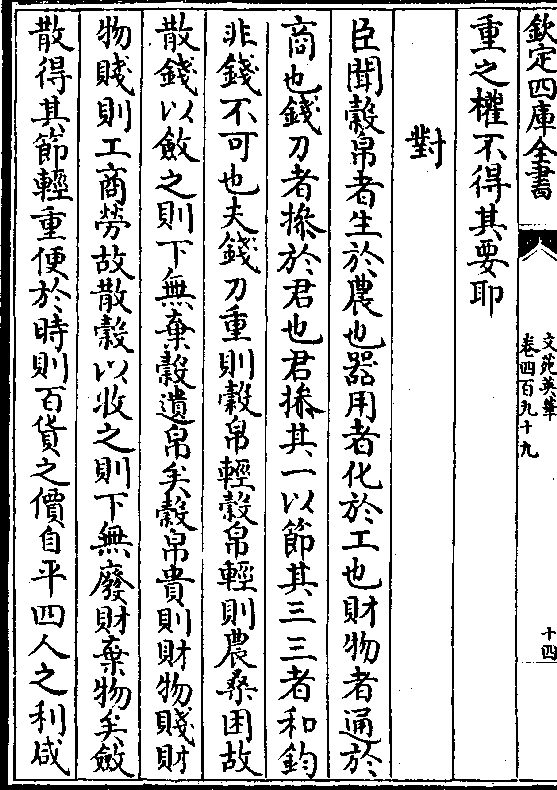 欽定四庫全書
文苑英華
卷四百九十九
十四
重之權不得其要耶
對
臣聞穀帛者生於農也器用者化於工也財物者通於
商也錢刀者操於君也君操其一以節其三三者和鈞
非錢不可也夫錢刀重則穀帛輕穀帛輕則農桑困故
散錢以斂之則下無棄穀遺帛矣穀帛貴則財物賤財
物賤則工商勞故散穀以收之則下無廢財棄物矣斂
散得其節輕重便於時則百貨之價自平四人之利咸